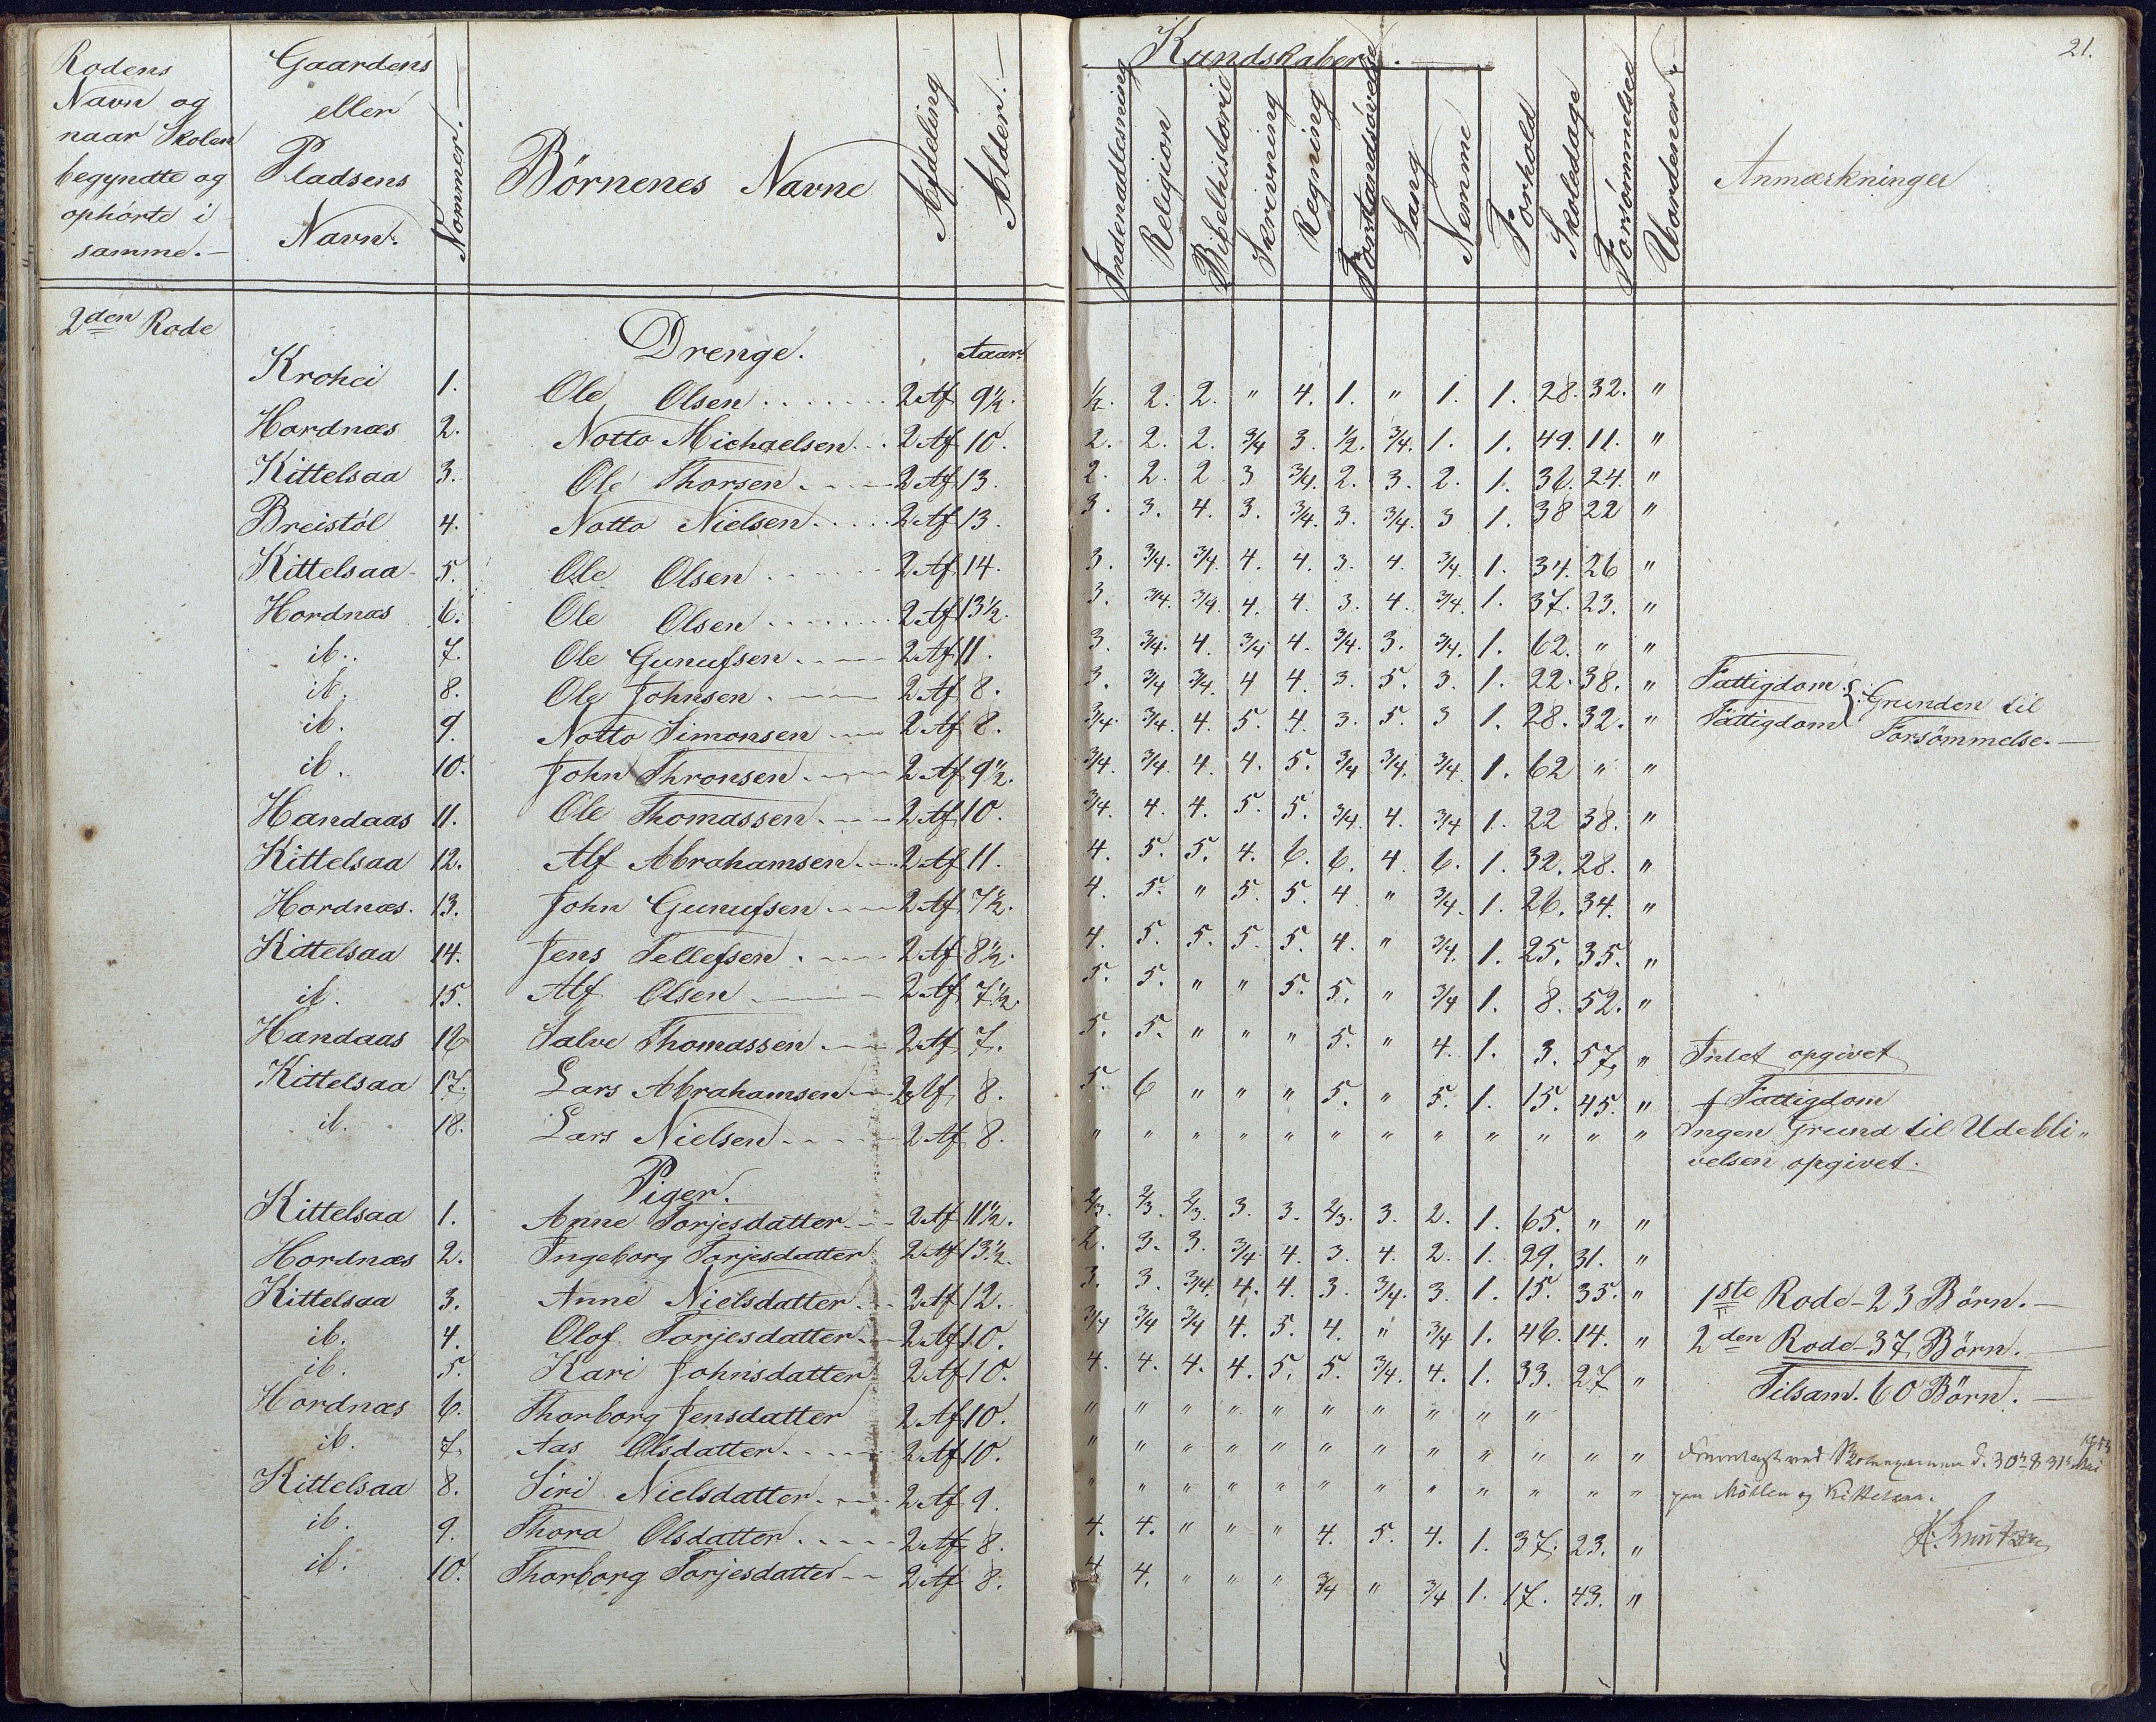 21.
Rodens Navn og naar Skolen begyndte og ophörte i samme.— | Gaardens eller Pladsens Navn. | Nommer.— | Börnenes Navne | Afdeling | Alder.—
Kundskaber.—
Indenadlesning | Religion | Bibelhistorie | Skrivning | Regning | Forstandsövelse | Sang | Nemme | Forhold | Skoledage | Forsömmelser | Uordener | Anmærkninger
2den Rode
Drenge. Aar.
Krohei 1. Ole Olsen 2 Af 9½. ½. 2. 2. " 4. 1. " 1. 1. 28. 32. "
Hordnæs 2. Notto Michaelsen 2 Af 10. 2. 2. 2. 3/4 3. ½. 3/4. 1. 1. 49. 11. "
Kittelsaa 3. Ole Thorsen 2 Af 13. 2. 2. 2 3 3/4. 2. 3. 2. 1. 36. 24. "
Breistöl 4. Notto Nielsen 2 Af 13. 3. 3. 4. 3. 3/4. 3. 3/4. 3 1. 38 22 "
Kittelsaa 5. Ole Olsen 2 Af 14. 3. 3/4. 3/4. 4. 4. 3. 4. 3/4. 1. 34. 26 "
Hordnæs 6. Ole Olsen 2 Af 13½. 3. 3/4. 3/4. 4. 4. 3. 4. 3/4. 1. 37. 23. "
ib. 7. Ole Gunufsen 2 Af 11. 3. 3/4. 4. 3/4 4. 3/4. 3. 3/4. 1. 62. " "
ib. 8. Ole Johnsen 2 Af 8. 3. 3/4 3/4. 4 4. 3. 5. 3. 1. 22. 38. " Fattigdom } Grunden til
ib. 9. Notto Simonsen 2 Af 8. 3/4. 3/4. 4. 5. 4. 3. 5. 3 1. 28. 32. " Fattigdom Forsömmelse.—
ib. 10. John Thronsen 2 Af 9½. 3/4. 3/4. 4. 4. 5. 3/4 3/4. 3/4. 1. 62 " "
Handaas 11. Ole Thomassen 2 Af 10. 3/4. 4. 4. 5. 5. 3/4. 4. 3/4 1. 22 38. "
Kittelsaa 12. Alf Abrahamsen 2 Af 11. 4. 5. 5. 4. 6. 6. 4 6. 1. 32. 28. "
Hordnæs. 13. John Gunufsen 2 Af 7½. 4. 5. " 5. 5. 4 " 3/4. 1. 26. 34. "
Kittelsaa 14. Jens Tellefsen 2 Af 8½. 4. 5. 5. 5. 5. 4. " 3/4 1. 25. 35. "
ib. 15. Alf Olsen 2 Af 7½. 5. 5. " " 5. 5. " 3/4 1. 8. 52. "
Handaas 16 Salve Thomassen 2 Af 7. 5. 5. " " " 5. " 4. 1. 3. 57. " Intet opgivet
Kittelsaa 17. Lars Abrahamsen 2 Af 8. 5. 6 " " " 5. " 5. 1. 15. 45. " f Fattigdom
ib. 18. Lars Nielsen 2 Af 8. " " " " " " " " " " " " Ingen Grund til Udebli„
velsen opgivet.
Piger.
Kittelsaa 1. Anne Torjesdatter 2 Af 11½. 2/3. 2/3. 2/3. 3. 3. 2/3. 3. 2. 1. 65. " "
Hordnæs 2. Ingeborg Torjesdatter 2 Af 13½. 2. 3. 3. 3/4 4. 3. 4. 2. 1. 29. 31. "
Kittelsaa 3. Anne Nielsdatter 2 Af 12. 3. 3. 3/4. 4. 4. 3. 3/4. 3. 1. 15. 35. " 1ste Rode - 23 Börn.—
ib. 4. Olof Torjesdatter 2 Af 10. 3/4 3/4 3/4 4. 5. 4. " 3/4 1. 46. 14. " 2den Rode - 37 Börn.—
ib. 5. Kari Johnsdatter 2 Af 10. 4. 4. 4. 4. 5. 5. 3/4. 4. 1. 33. 27 " Tilsam. 60 Börn.—
Hordnæs 6. Thorborg Jensdatter 2 Af 10. " " " " " " " " " "
ib. 7. Aas Olsdatter 2 Af 10. " " " " " " " " " " " "
Kittelsaa 8. Siri Nielsdatter 2 Af 9. " " " " " " " " " " " "
ib. 9. Thora Olsdatter 2 Af 8. 4. 4. " " " 4. 5. 4. 1. 37. 23. "
ib. 10. Thorborg Torjesdatter 2 Af 8. 4 4. " " " 3/4 " 3/4 1. 17. 43. "
ved d. 30te & 31te Mai
og Kittelsaa.